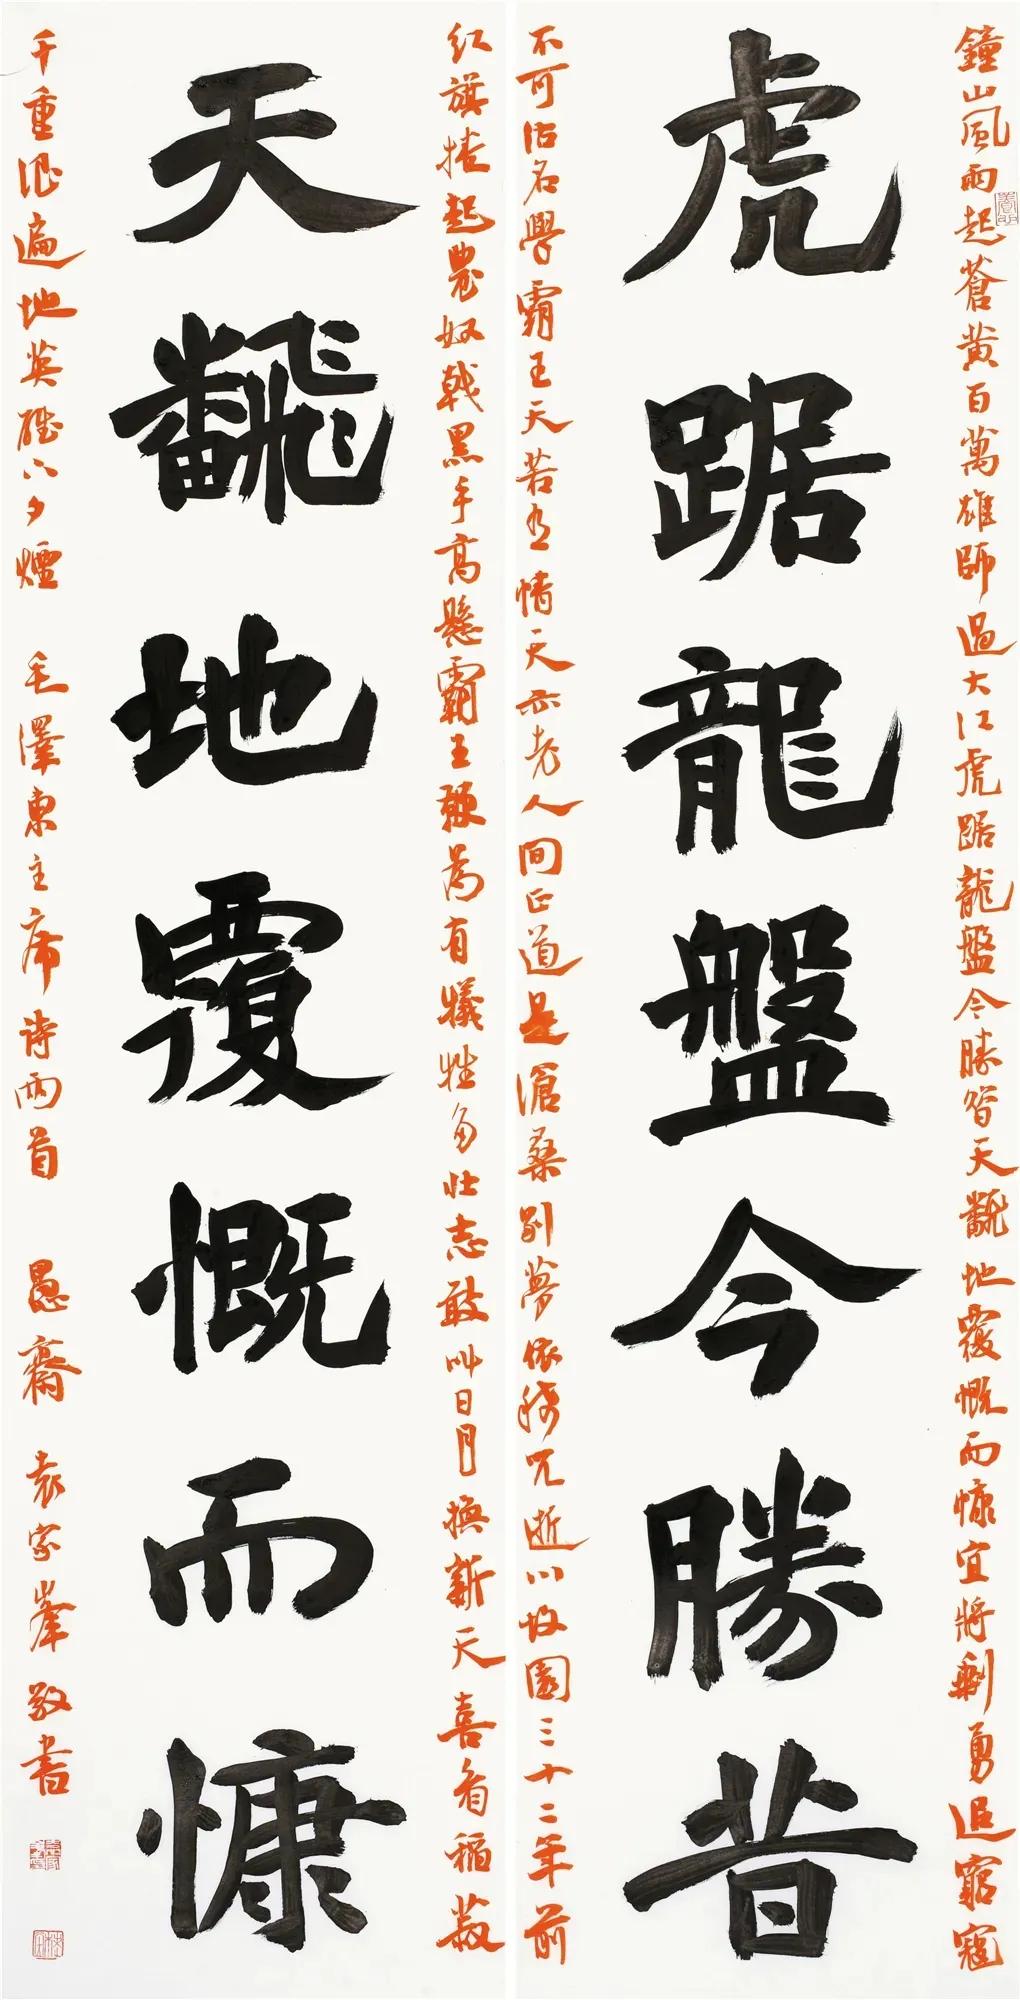 鐘山風雨起蒼黄百萬雄師過大江虎踞龍盤今勝昔天飜地覆慨而慷宜將剩勇追窮寇
虎踞龍盤今勝昔
不可沽名學霸王天若有情天亦老人間正道是滄桑別夢依稀咒逝川故園三十二年前
紅旗捲起農奴戟黑手高懸霸主鞭為有犧牲多壯志敢叫日月換新天喜看稻菽
天飜地覆慨而慷
千重浪遍地英雄下夕煙 毛澤東主席詩兩首 愚齋 袁家峯敬書